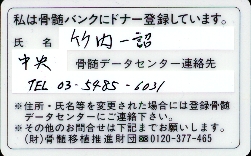 私は骨髄バンクにドナー登録しています。
氏名 竹内一詔
中央 骨髄データセンター連絡先
TEL 03-5485-6031
※住所・氏名等を変更された場合には登録骨髄
データセンターにご連絡下さい。
※その他のお問合せは下記までお願いします。
(財)骨髄移植推進財団 0120-377-465